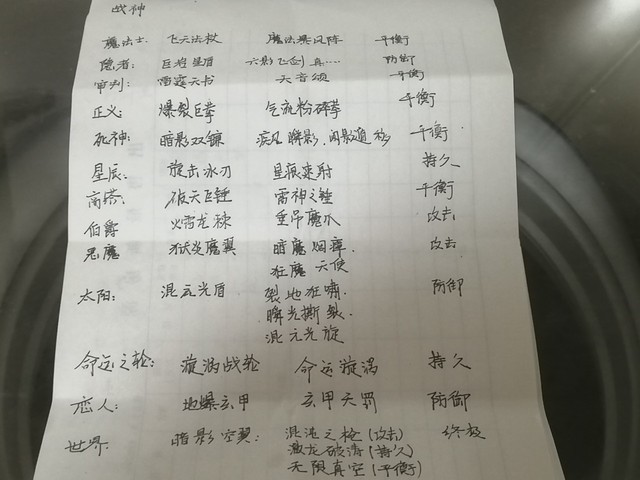 战神
魔法士: 飞天法杖 魔法暴风阵 平衡
隐者: 巨岩星盾 六影飞剑 真…… 防御
审判: 雷霆天书 天音颂 平衡
正义: 爆裂巨拳 气流粉碎拳 平衡
死神: 暗影双镰 疾风瞬影.闪影通移 平衡
星辰: 旋击冰刃 星痕乘射 持久
高塔: 破天巨锤 雷神之锤 平衡
伯爵 火雷龙棘 重吊魔爪 攻击
恶魔 狱炎魔翼 暗魔烟瘴 攻击
狂魔天使
太阳: 混元光盾 裂地狂啸. 防御
瞬光撕裂
混元光旋
命运之轮: 漩涡战轮 命运漩涡 持久
恋人: 地爆玄甲 玄甲天罚 防御
世界: 暗影空翼: 混沌之枪(攻击) 终极
激龙破涛(持久)
无限真空(平衡)